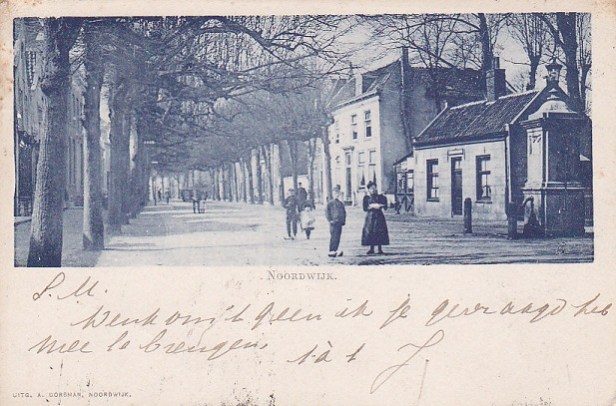 NOORDWIJK.
S. M.
Denk om 't geen ik je gevraagd heb
mee te brengen. tàt J.
UITG. A. DORSMAN, NOORDWIJK.